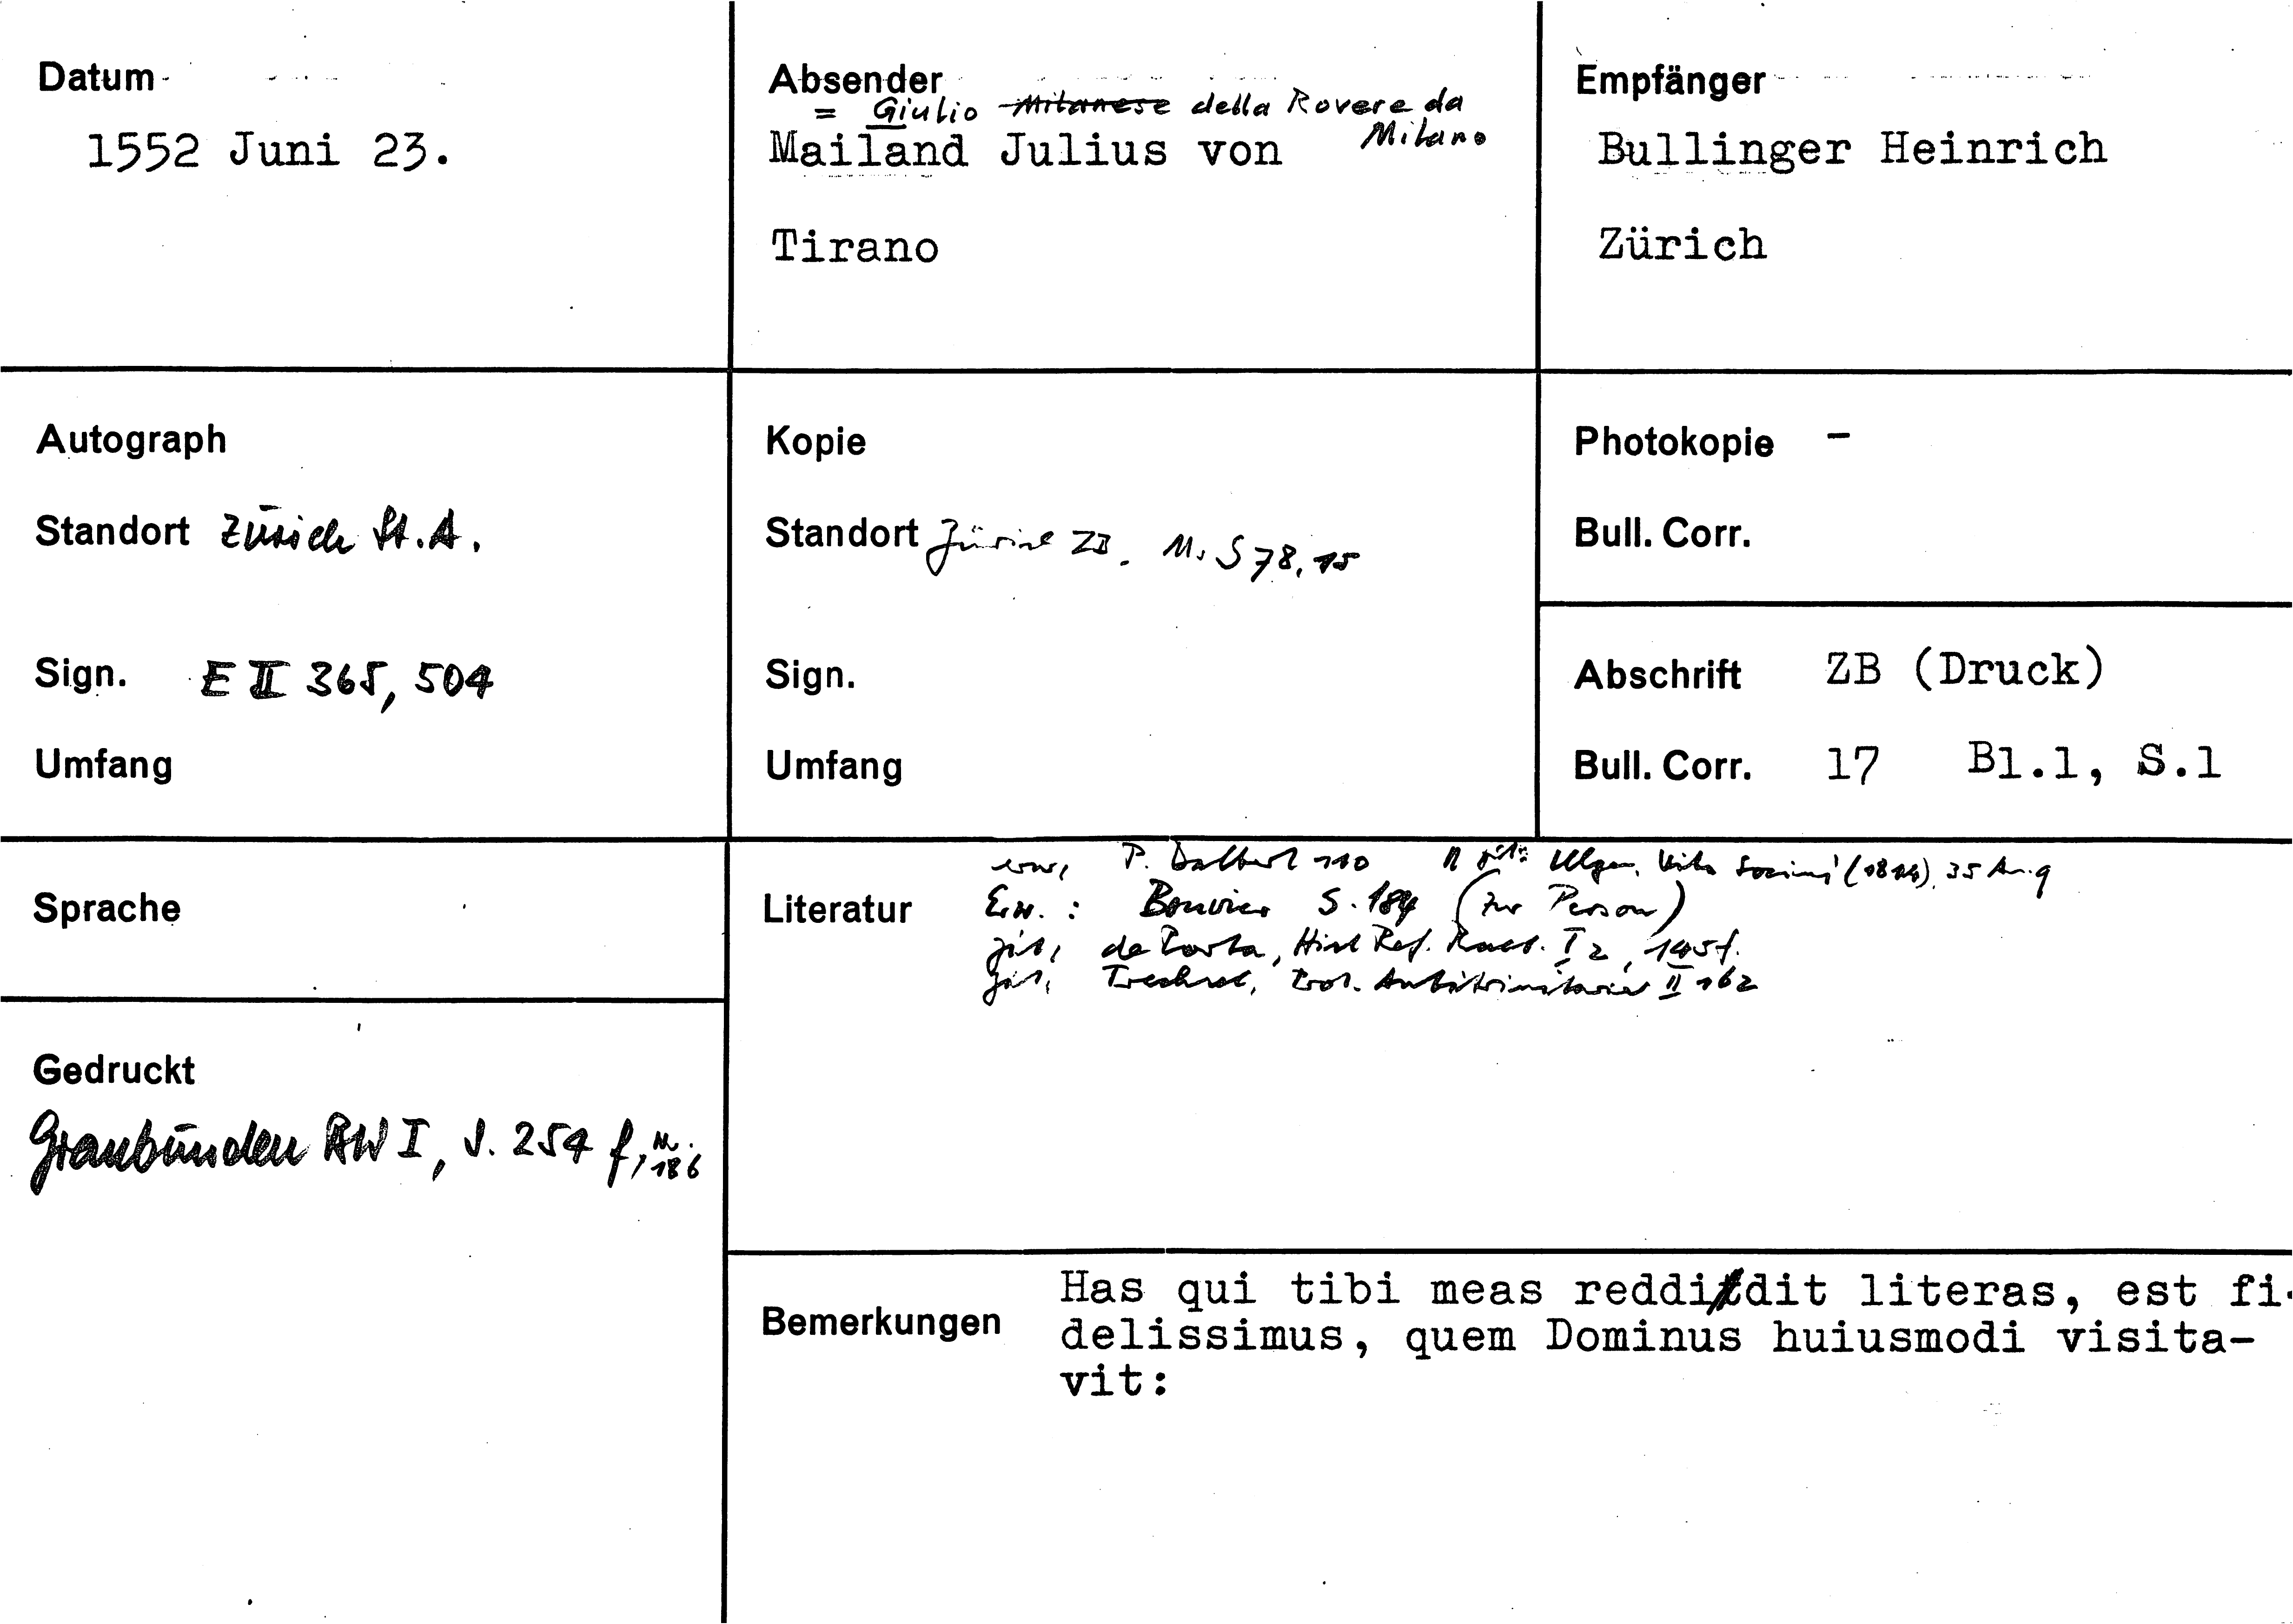 Datum
1552 Juni 23.
Absender
= Giulio Milanese della Rovere da
Milano
Mailand Julius von
Tirano
Empfänger
Bullinger Heinrich
Zürich
Autograph
Standort Zürich St.A.
Sign. E II 365, 504
Umfang
Kopie
Standort Zürich ZB. Ms S 78, 15
Sign.
Umfang
Photokopie -
Bull. Corr.
Abschrift ZB (Druck)
Bull. Corr. 17 Bl.1, S.1
Sprache
Gedruckt
Graubünden BW I, S. 254 f, Nr. 186
erw, P. Dalbert 110 zit: Illgen, Vita Socini (1814), 35 Anm. 9
Literatur Erw.: Bouvier S. 184 (zur Person)
zit, de Porta, Hist Ref. Raet. I 2, 145f.
zit, Trechsel, Prot. Antitrinitarier II 162
Bemerkungen
Has qui tibi meas reddidit literas, est fi-
delissimus, quem Dominus huiusmodi visita-
vit: